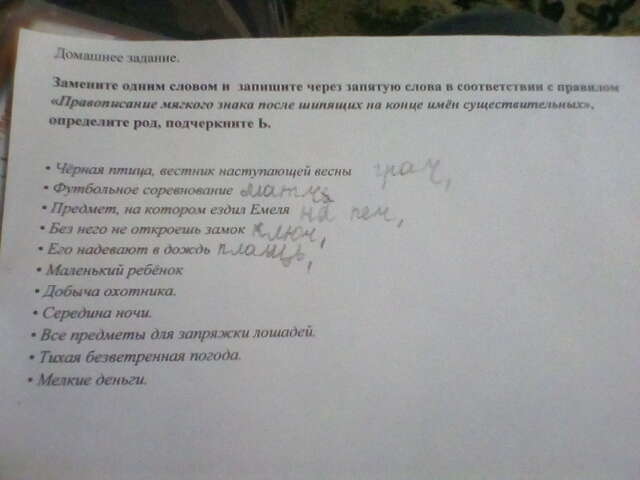 Домашнее задание.
Замените одним словом и запишите через запятую слова в соответствии с правилом
«Правописание мягкого знака после шипящих на конце имён существительных»,
определите род, подчеркните Ь.
• Чёрная птица, вестник наступающей весны грач,
• Футбольное соревнование матч,
• Предмет, на котором ездил Емеля на печ,
• Без него не откроешь замок ключ,
• Его надевают в дождь плащь,
• Маленький ребёнок
• Добыча охотника.
• Середина ночи.
• Все предметы для запряжки лошадей.
• Тихая безветренная погода.
• Мелкие деньги.